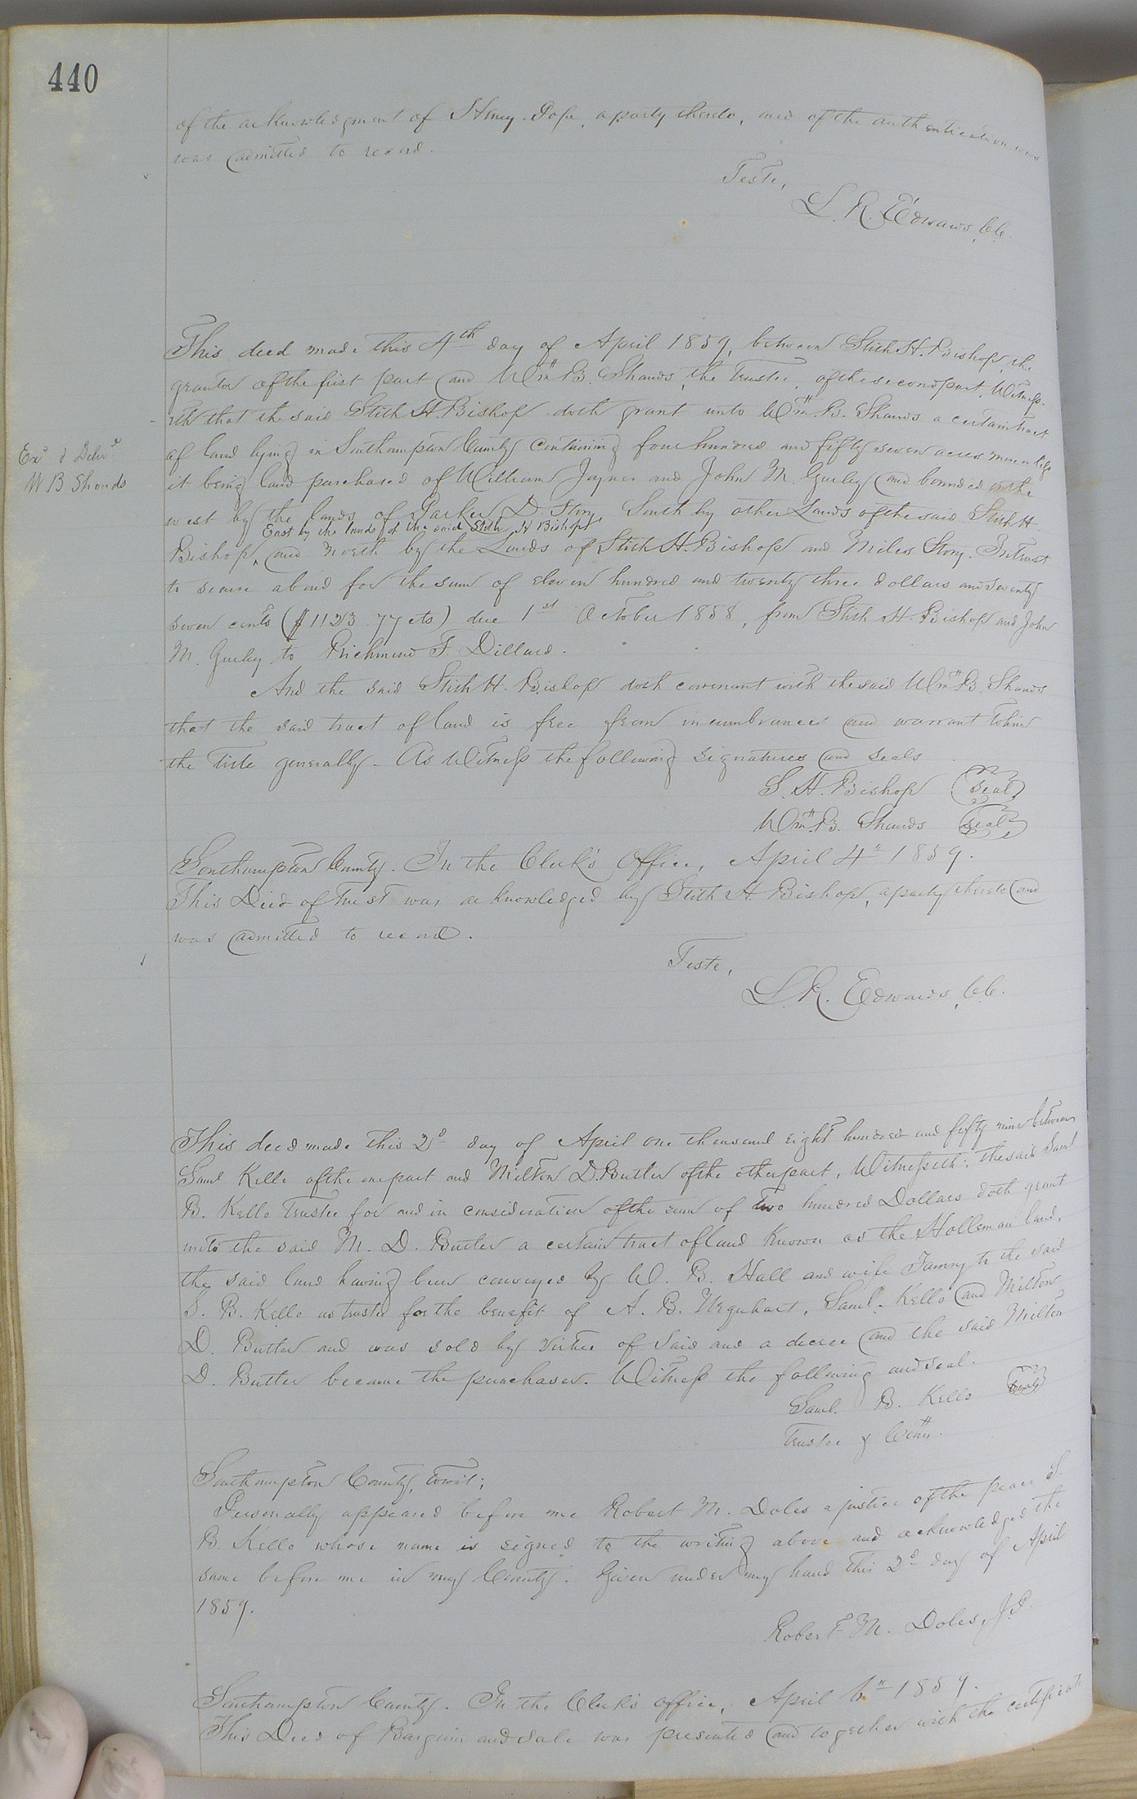 440
of the acknowledgment of Henry Pope, a party thereto, and of the authentication was
was admitted to record.
Teste,
L. R. Edwards, C.C.
This deed made this 4th day of April 1859, between Stith H. Bishop, the
grantor of the first part and Wm. B. Shands, the Trustee, of the second part, Witness-
eth that the said Stith H Bishop doth grant unto Wm. B. Shands a certain tract
of land lying in Southampton County containing four hundred and fifty seven acres more or less
Exd & Delivd
W B Shands
it being land purchased of William Joyner and John M. Gurley and bounded on the
west by the lands of Parker D Story, South by other Lands of the said Stith H.
East by the lands of the said Stith H Bishop
Bishop, and North by the Lands of Stith H. Bishop and Miles Story. In trust
to secure a bond for the sum of eleven hundred and twenty three dollars and seventy
seven cents ($1123.77 cts) due 1st October 1858, from Stith H. Bishop and John
M. Gurley to Richmond F. Dillard.
And the said Stith H. Bishop doth covenant with the said Wm. B. Shands
that the said tract of land is free from incumbrances and warrant to him
the Title generally. As Witness the following signatures and seals
S. H. Bishop (seal)
Wm. B. Shands (seal)
Southampton County. In the Clerk's Office, April 4th 1859.
This Deed of Trust was acknowledged by Stith H. Bishop, a party thereto and
was admitted to record.
Teste,
L. R. Edwards, C.C.
This deed made this 2d day of April one thousand eight hundred and fifty nine between
Saml Kello of the one part and Milton D. Butler of the other part, Witnesseth: the said Saml
B. Kello Trustee for and in consideration of the sum of two hundred Dollars doth grant
unto the said M. D. Butler a certain tract of land known as the Holleman land,
the said land having been conveyed by W. B. Hall and wife Tamry to the said
S. B. Kello as trustee for the benefit of A. B. Urquhart, Saml. Kello and Milton
D. Butler and was sold by virtue of said and a decree and the said Milton
D. Butler became the purchaser. Witness the following and seal.
Saml. B. Kello (seal)
Trustee &
Southampton County, towit;
Personally appeared before me Robert M. Doles a justice of the peace S.
B. Kello whose name is signed to the writing above and acknowledged the
same before me in my County. Given under my hand this 2d day of April
1859.
Robert M. Doles, J.P.
Southampton County. In the Clerk's office, April 1859.
This Deed of Bargain and sale was presented and together with the certificate